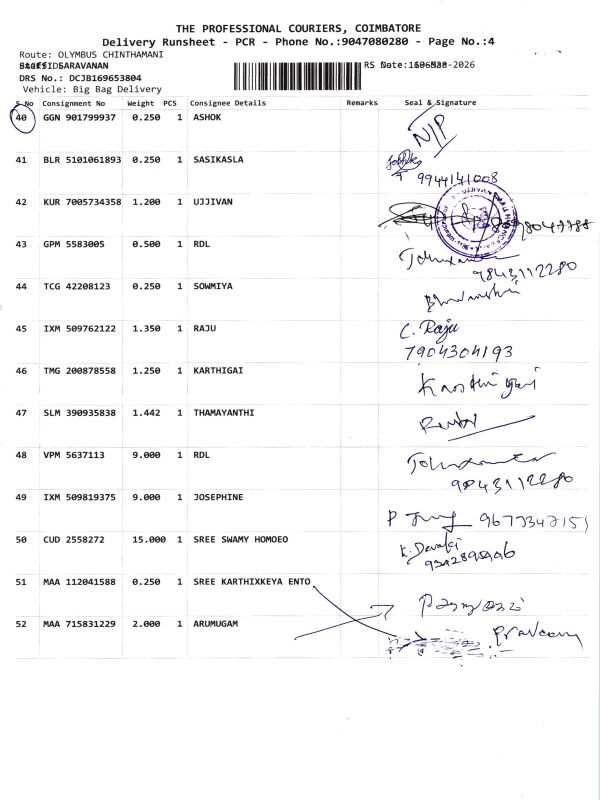 THE PROFESSIONAL COURIERS, COIMBATORE
Delivery Runsheet - PCR - Phone No.:9047080280 - Page No.:4
Route: OLYMBUS CHINTHAMANI
SARAVANAN
DRS No.: DCJB169653804
Vehicle: Big Bag Delivery
RS Date: -2026
S No Consignment No Weight PCS Consignee Details Remarks Seal & Signature
40 GGN 901799937 0.250 1 ASHOK N/P
41 BLR 5101061893 0.250 1 SASIKASLA
9944141008
42 KUR 7005734358 1.200 1 UJJIVAN
43 GPM 5583005 0.500 1 RDL
9843112280
44 TCG 42208123 0.250 1 SOWMIYA
45 IXM 509762122 1.350 1 RAJU C. Raju
7904304193
46 TMG 200878558 1.250 1 KARTHIGAI
47 SLM 390935838 1.442 1 THAMAYANTHI
48 VPM 5637113 9.000 1 RDL
9843112280
49 IXM 509819375 9.000 1 JOSEPHINE
50 CUD 2558272 15.000 1 SREE SWAMY HOMOEO K. Devaki
51 MAA 112041588 0.250 1 SREE KARTHIXKEYA ENTO
52 MAA 715831229 2.000 1 ARUMUGAM